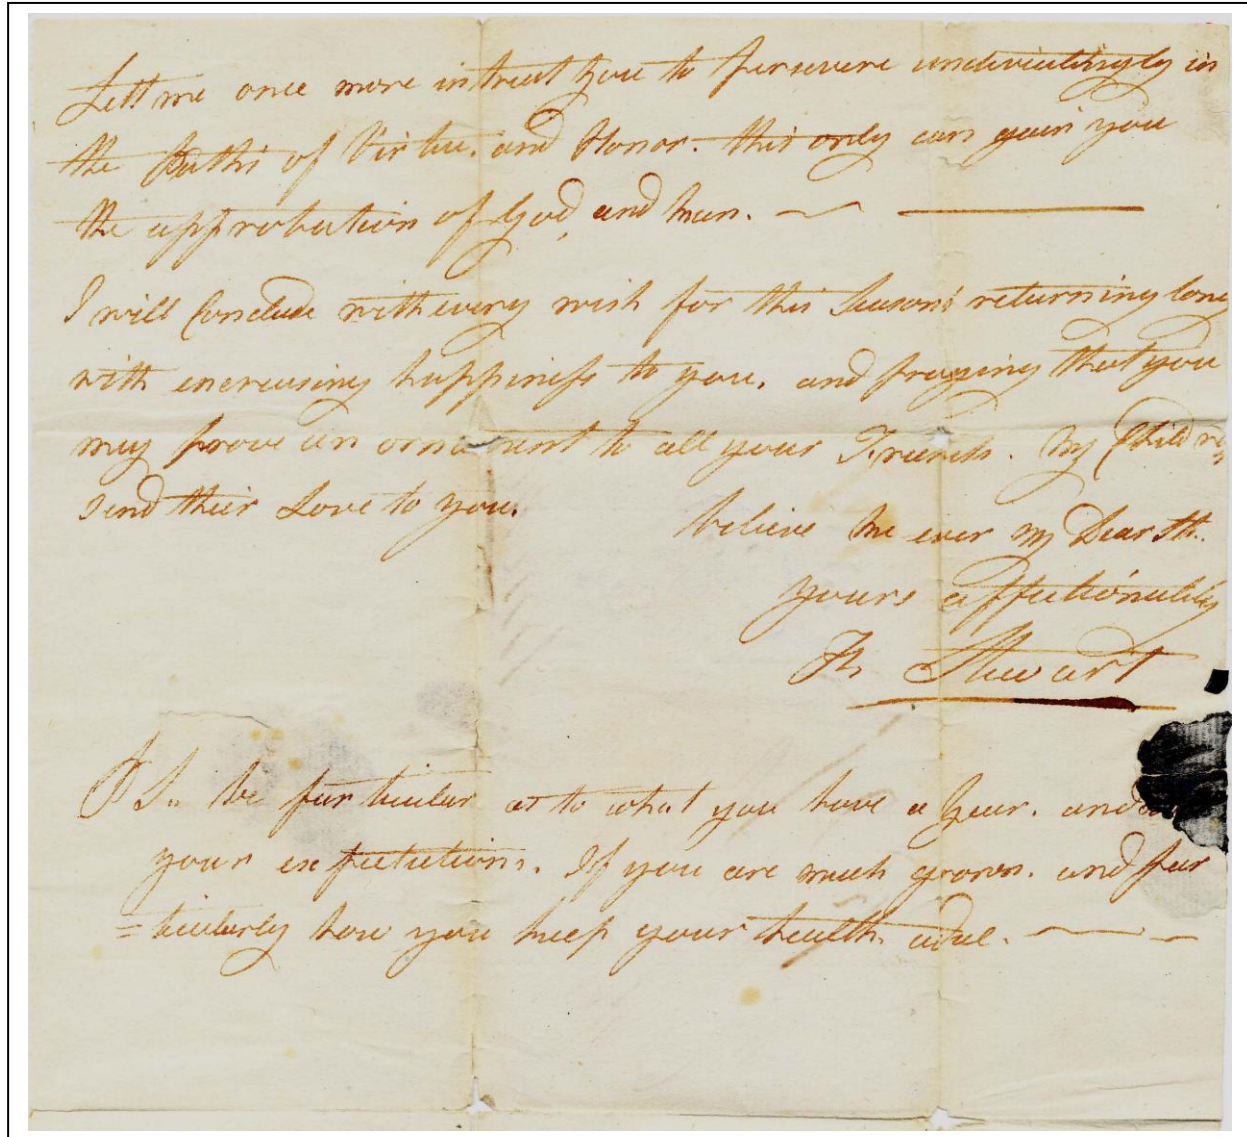 Lett me once more intreat you to persevere undeviatingly in
the Paths of Virtue, and Honor. this only can gain you
the approbation of God, and man. ~ ———
I will Conclude with every wish for this Season's returning long
with encreasing happiness to you, and praying that you
may prove an ornament to all your Friends. My Children
send their Love to you.
believe me ever my Dear
yours affectionately
Stewart
PS.. be particular as to what you have a Year. and
your expectations. If you are much grown. and par
=ticularly how you keep your health. adue. ——